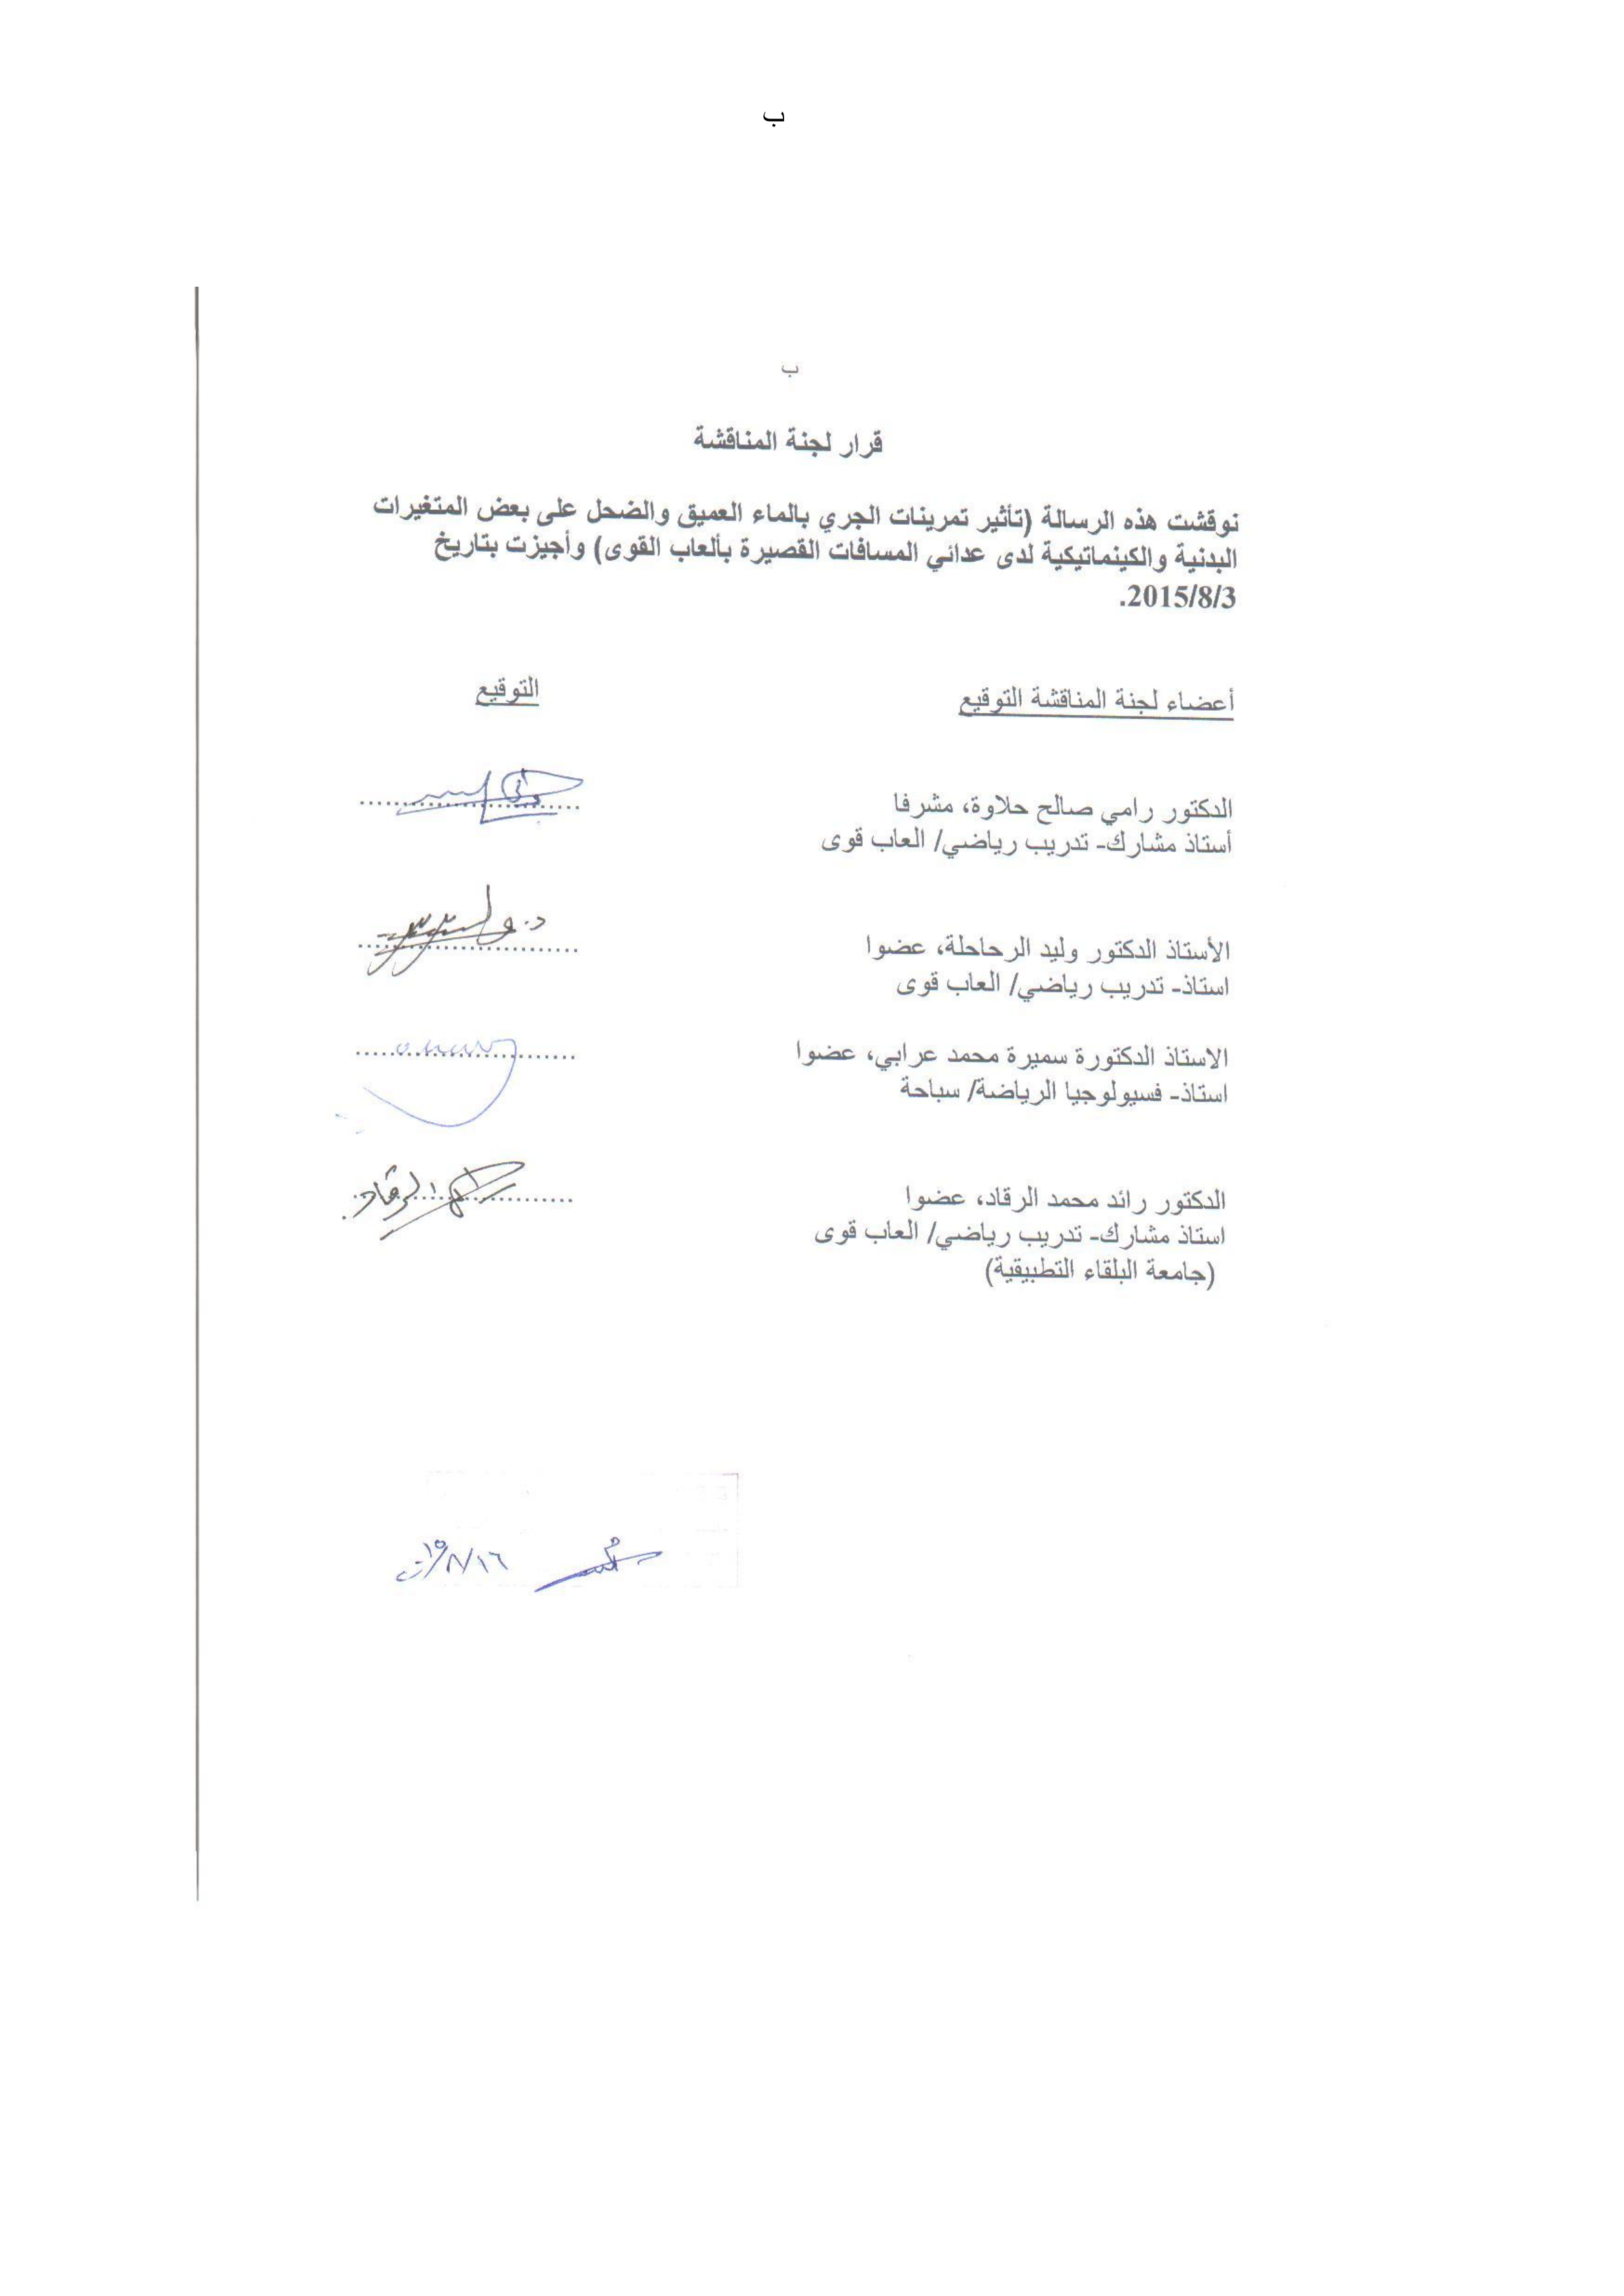 ب
ب
قرار لجنة المناقشة
نوقشت هذه الرسالة (تأثير تمرينات الجري بالماء العميق والضحل على بعض المتغيرات
البدنية والكينماتيكية لدى عدائي المسافات القصيرة بألعاب القوى) وأجيزت بتاريخ
2015/8/3.
أعضاء لجنة المناقشة التوقيع
التوقيع
الدكتور رامي صالح حلاوة، مشرفا
أستاذ مشارك- تدريب رياضي/ العاب قوى
الأستاذ الدكتور وليد الرحاحلة، عضوا
استاذ- تدريب رياضي/ العاب قوى
الاستاذ الدكتورة سميرة محمد عرابي، عضوا
استاذ- فسيولوجيا الرياضة/ سباحة
الدكتور رائد محمد الرقاد، عضوا
استاذ مشارك- تدريب رياضي/ العاب قوى
(جامعة البلقاء التطبيقية)